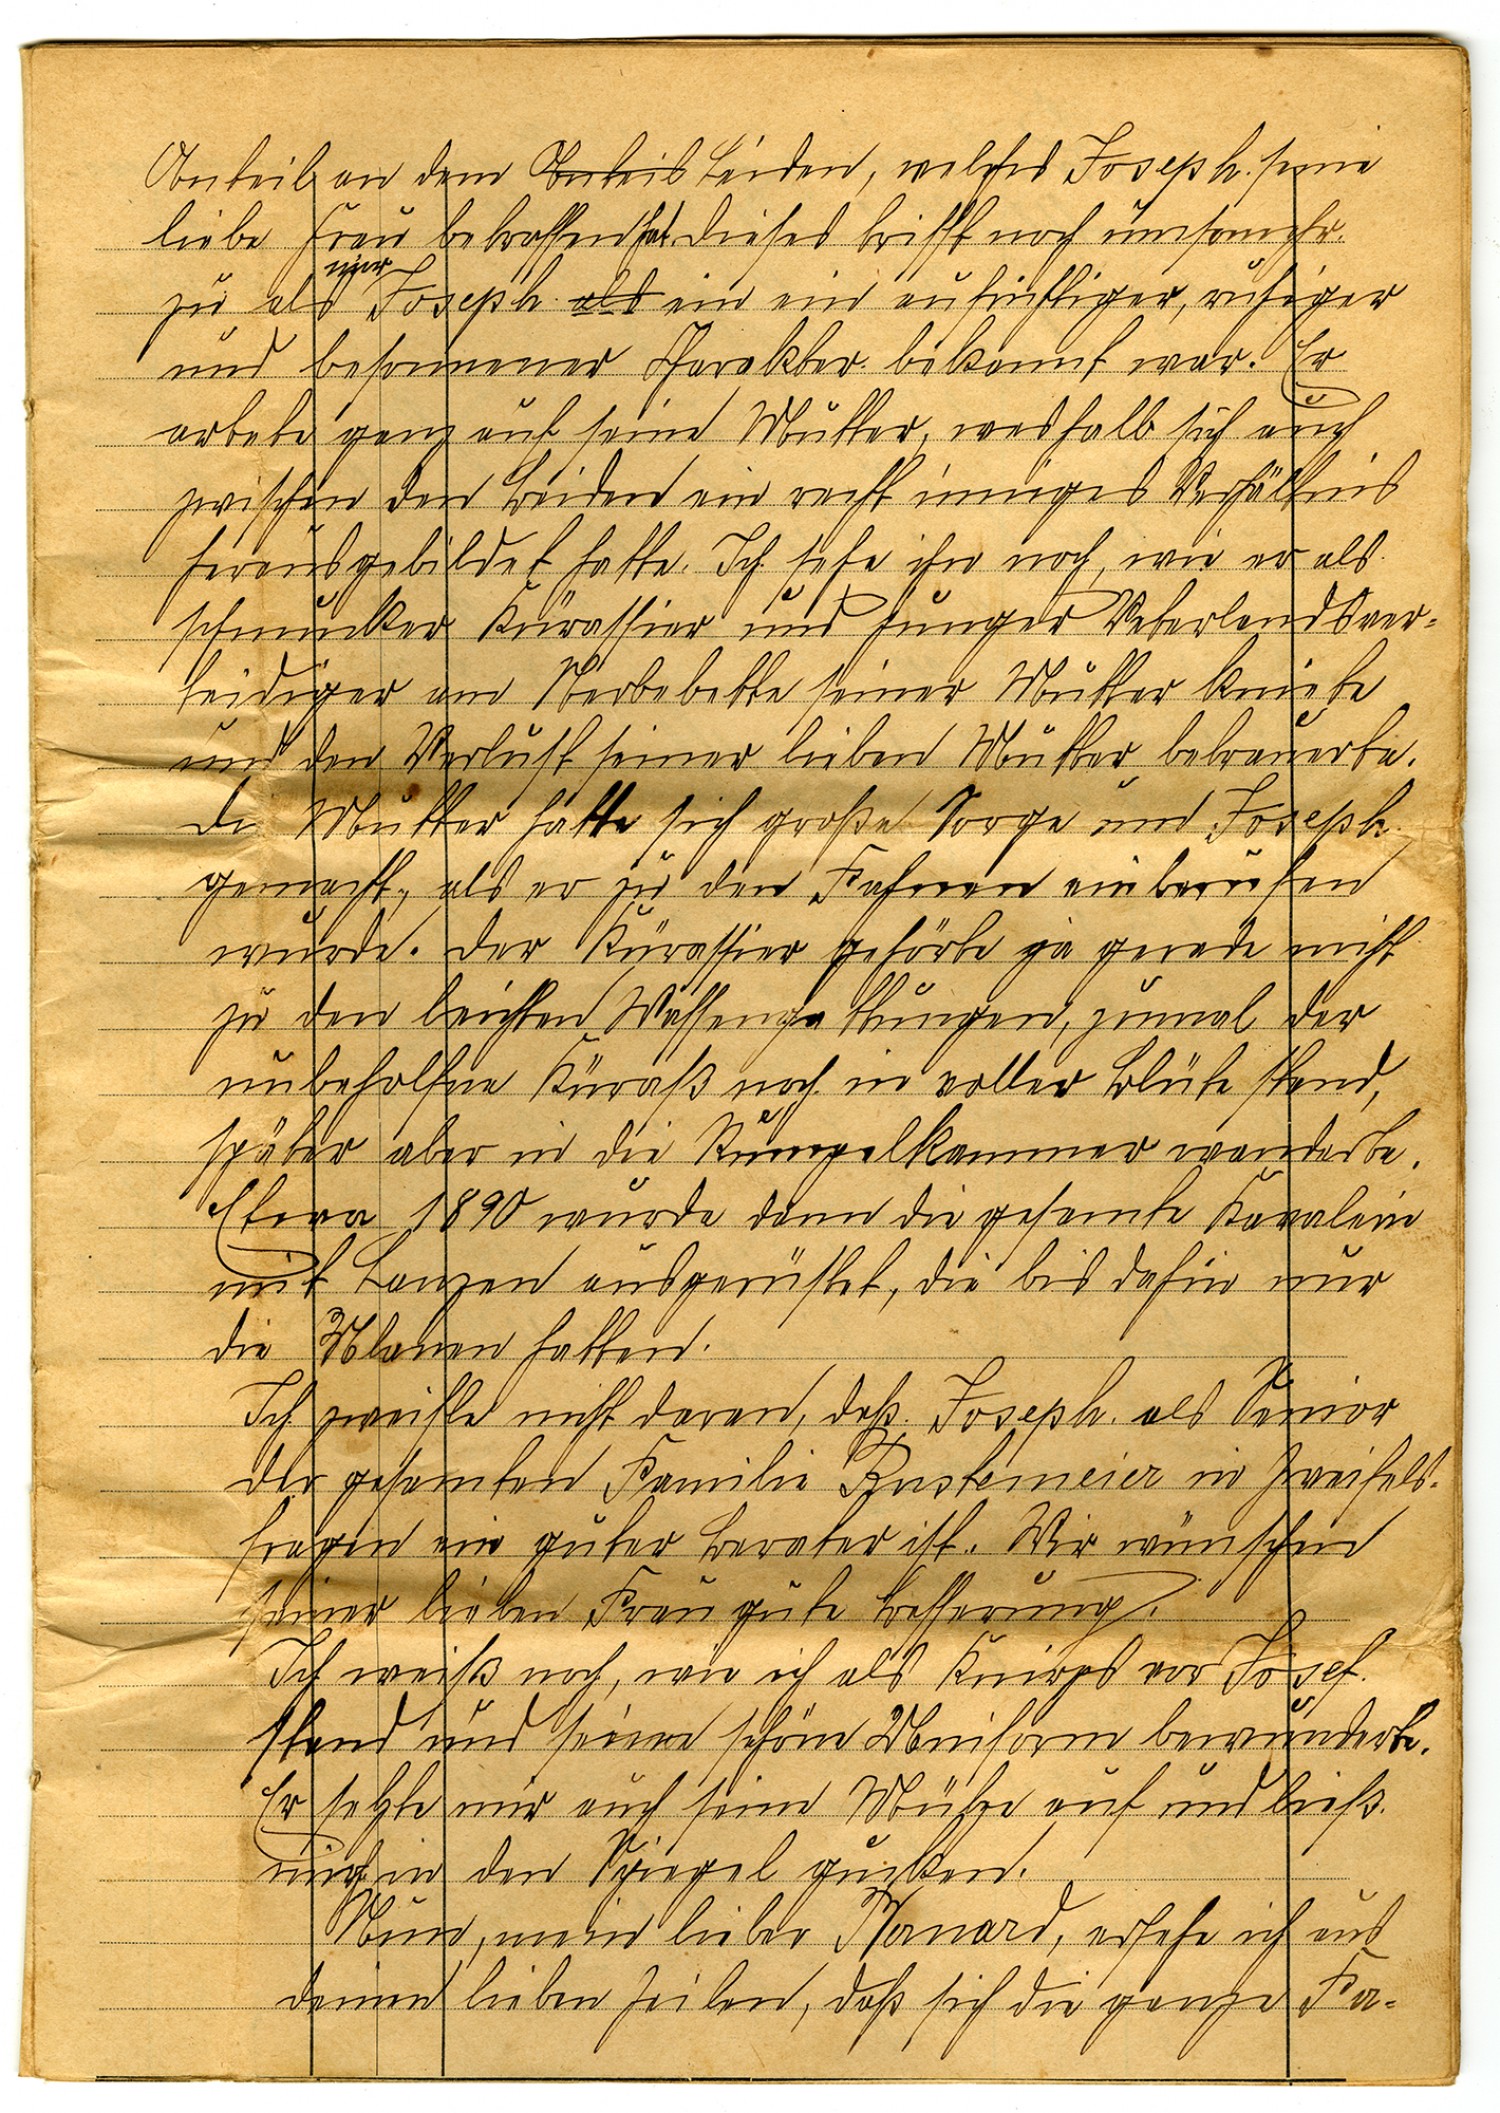 Anteil an dem Anteil Leiden, welches Joseph. seine
liebe Frau betroffen hat. dieses trifft noch umsomehr.
zu als mir Joseph. als ein ein aufrichtiger, ruhiger
und besonnener Charakter. bekannt war. Er
artete ganz auf seine Mutter, weshalb sich auch
zwischen den Beiden ein recht inniges Verhältnis
herausgebildet hatte. Ich sehe ihn noch, wie er als
schmucker Kürassier und junger Vaterlandsver-
teidiger am Sterbebette seiner Mutter kniete
und den Verlust seiner lieben Mutter betrauerte.
Di Mutter hatte sich große Sorge um Joseph.
gemacht, als er zu den Fahnen einberufen
wurde. Der Kürassier gehörte ja gerade nicht
zu den leichten Waffengattungen, zumal der
unbeholfne Küraß noch in voller Blüte stand,
später aber in die Rumpelkammer wanderte.
Etwa 1890 wurde dann die gesamte Kavalerie
mit Lanzen ausgerüstet, die bis dahin nur
die Ulanen hatten.
Ich zweifle nicht daran, daß. Joseph. als Senior
der gesamten Familie Rustemeier in Zweifels-
fragen ein guter Berater ist. Wir wünschen
seiner lieben Frau gute Besserung.
Ich weiß noch, wie ich als Knirps vor Josef.
stand und seine schöne Uniform bewunderte.
Er setzte mir auch seine Mütze auf und ließ.
mich in den Spiegel gucken.
Nun, mein lieber Bernard, ersehe ich aus
deinen lieben Zeilen, daß sich die ganze Fa-